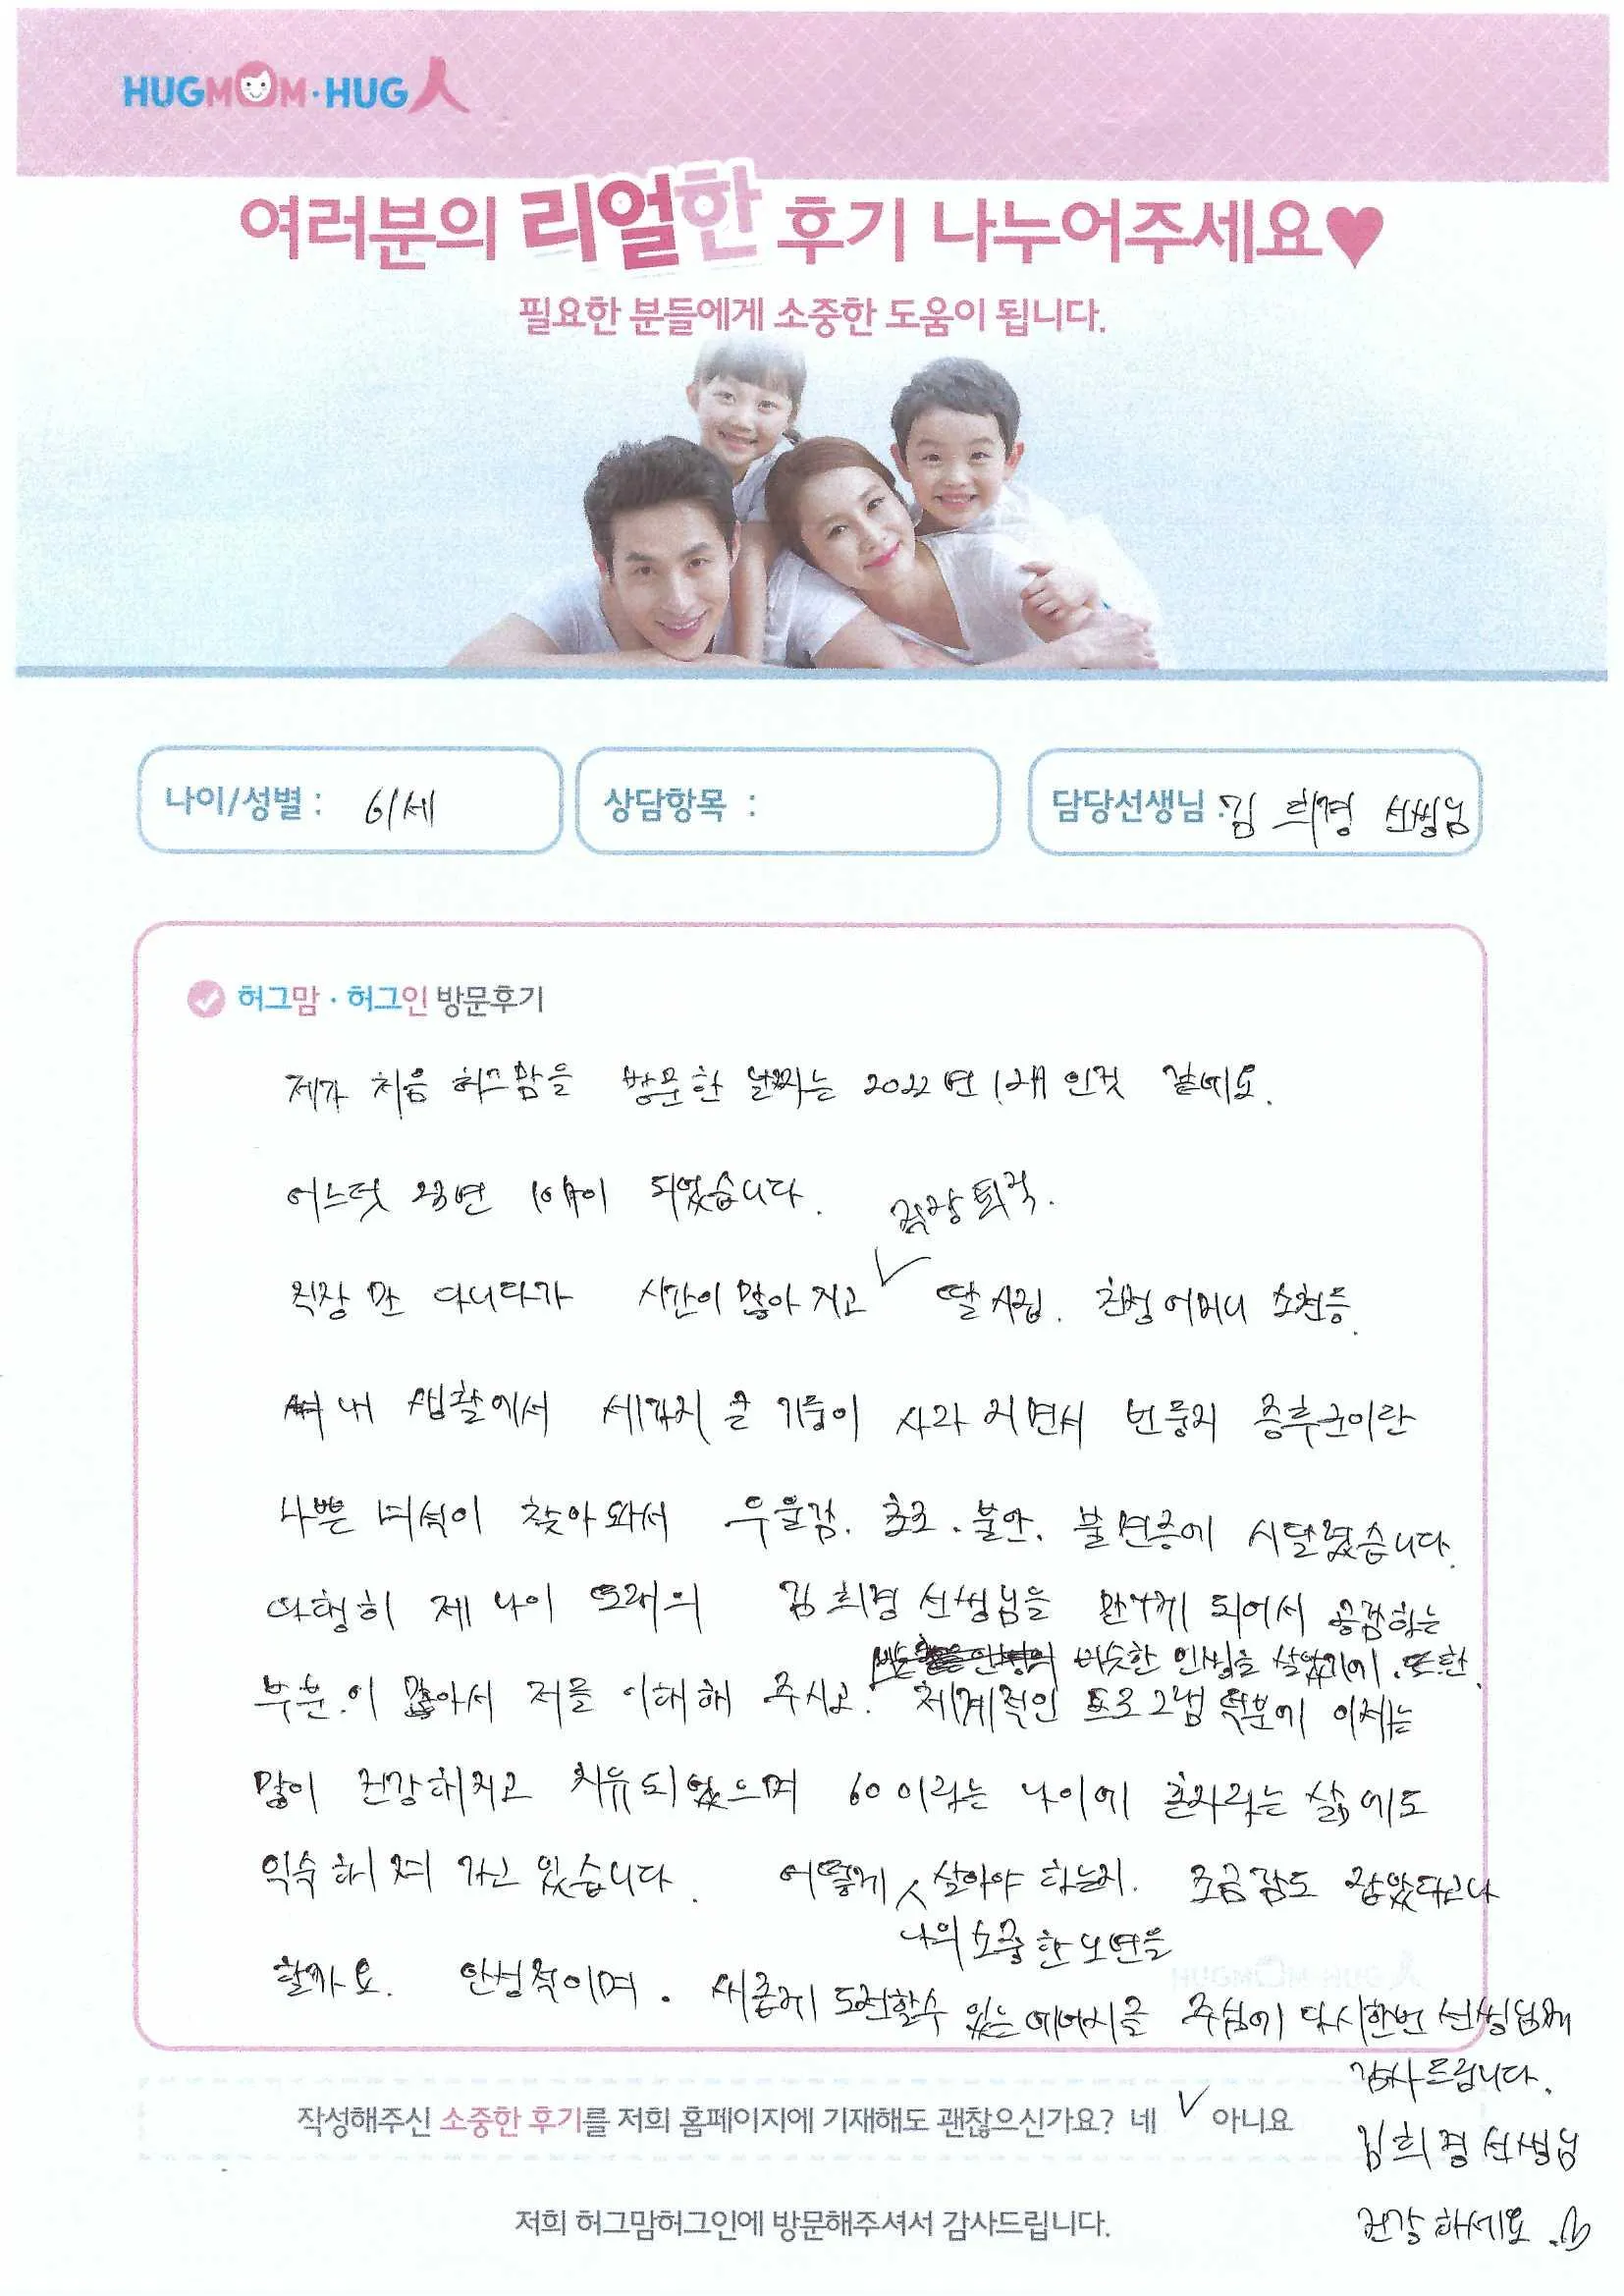 HUGMOM·HUG人
여러분의 리얼한 후기 나누어주세요♥
필요한 분들에게 소중한 도움이 됩니다.
나이/성별 : 61세
상담항목 :
담당선생님 : 김 희경 선생님
허그맘 · 허그인 방문후기
제가 처음 허그맘을 방문한 날짜는 2022년 인것 같네요.
어느덧 23년 10月이 되었습니다.
직장퇴직.
직장만 다니다가 시간이 많아지고 ✓ 딸 시집. 친정어머니 소천등.
내 생활에서 세가지 큰 기둥이 사라지면서 번둥지 증후군이란
나쁜 녀석이 찾아와서 우울감. 초조. 불안. 불면증에 시달렸습니다.
다행히 제 나이 또래의 김희경 선생님을 만나게 되어서 공감하는
비슷한 인생을 살았기에. 또한
부분.이 많아서 저를 이해해 주시고. 체계적인 프로그램 덕분에 이제는
많이 건강해지고 치유되었으며 60이라는 나이에 혼자라는 삶에도
익숙해져 가고 있습니다. 어떻게 살아야 하는지. 조금 감도 잡았다고나
나의 소중한 노년을
할까요. 안정적이며. 새롭게 도전할수 있는 에너지를 주심에 다시한번 선생님께
감사드립니다.
작성해주신 소중한 후기를 저희 홈페이지에 기재해도 괜찮으신가요? 네 ✓ 아니요
김희경 선생님
저희 허그맘허그인에 방문해주셔서 감사드립니다.
건강하세요.